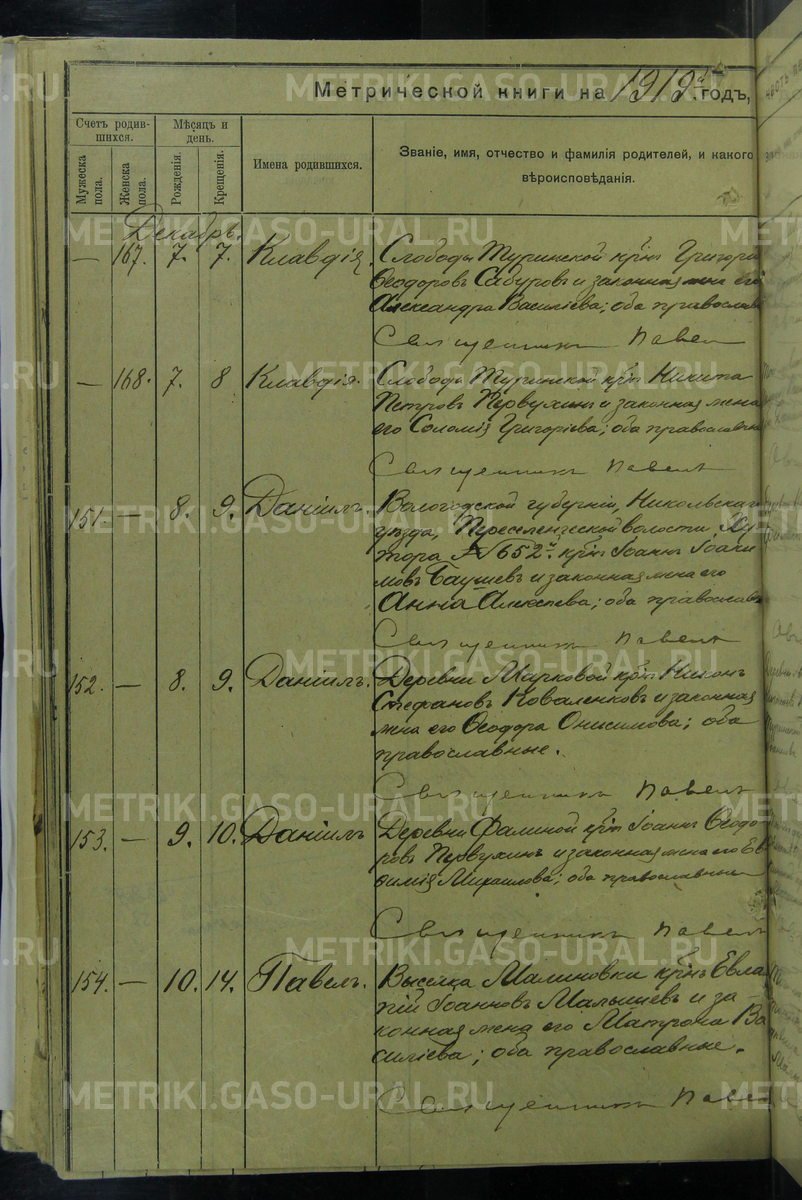 Метрической книги на 1919й годъ,
Счетъ родив-
шихся.
Мѣсяцъ и
день.
Мужеска
пола.
Женска
пола.
Рожденія.
Крещенія.
Имена родившихся.
Званіе, имя, отчество и фамилія родителей, и какого
вѣроисповѣданія.
Декабрь.
— 167. 7. 7. Клавдія. Слободы Туринской кр҃нъ Григорій
Ѳеодоровъ Сабуровъ и законная жена его
Александра Василіева; оба православ
Священникъ Павел
— 168. 7. 8 Клавдія. Слободы Туринской кр҃нъ Никита
Петровъ Первухинъ и законная жена
его Соломія Григоріева; оба православны
Священникъ Павелъ
151. — 8. 9. Даніилъ. Вологодской губерніи, Никольскаго
уѣзда, Переселенческой волости, Ху-
тора № 652й кр҃нъ Іоаннъ Іоаки
мовъ Баушевъ и законная жена его
Анна Алексѣева; оба православн
Священникъ Павелъ
152. — 8. 9. Даніилъ. Деревни Марковой кр҃нъ Никонъ
Стефановъ Коваленковъ и законная
жена его Ѳеодора Онисимова; оба
православные.
Священникъ Павелъ
153. — 9. 10. Даніилъ Деревни Фалиной кр҃нъ Іоаннъ Ѳеодо-
ровъ Первухинъ и законная жена его Ев
ѳимія Михаилова; оба православные
Священникъ Павелъ
154. — 10. 14. Павелъ. Выселка Малиновки кр҃нъ Евла
пій Іоанновъ Малышевъ и за
конная жена его Матрона Ва
силіева; оба православные.
Священникъ Павел
METRIKI.GASO-URAL.RU